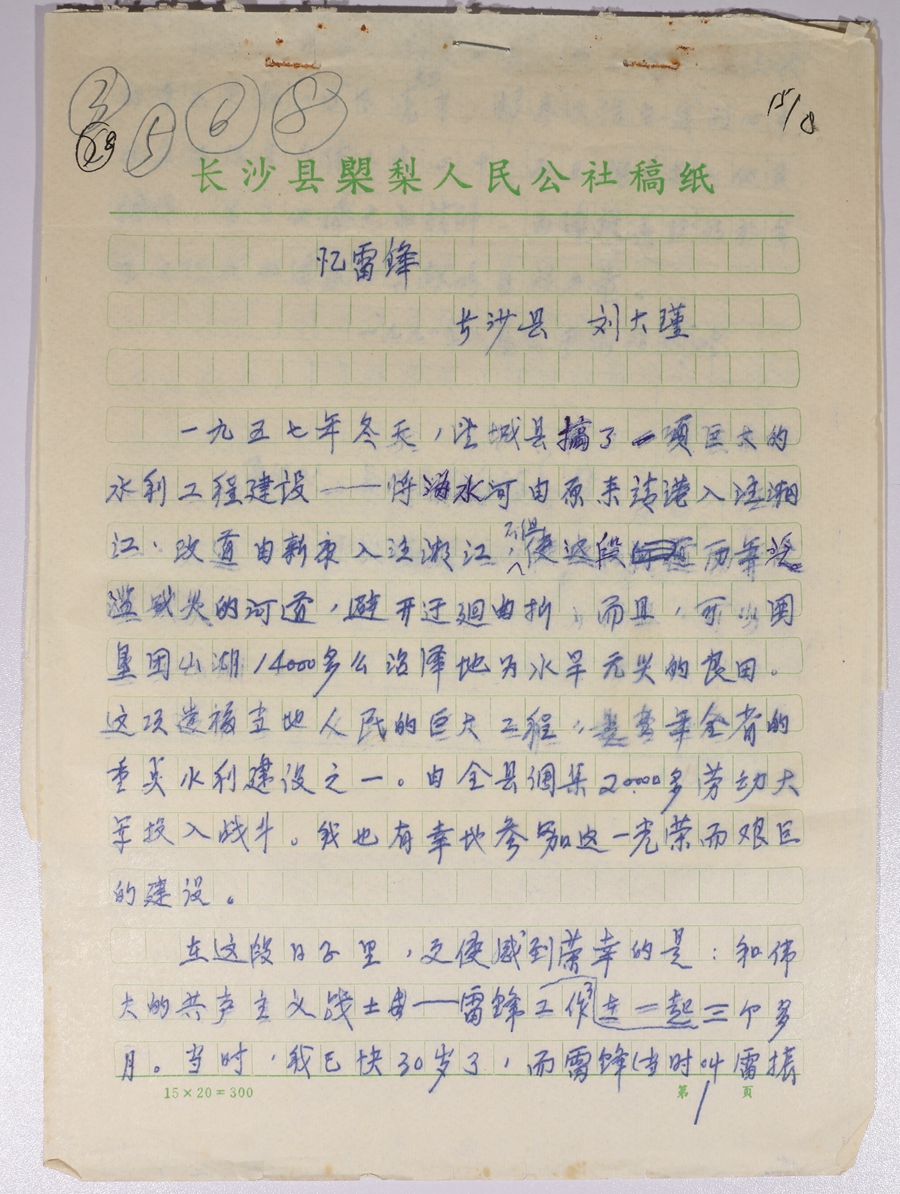 3 29 5 6 8
15/8
长沙县㮾梨人民公社稿纸
忆雷锋
长沙县 刘大瑾
一九五七年冬天，望城县搞了一项巨大的
水利工程建设——将沩水河由原来靖港入注湘
江，改道由新康入注湘江，不但使这段历年泛
滥成灾的河道，避开迂迴曲折，而且，可以围
垦团山湖14000多公沼泽地为水旱无灾的良田。
这项造福当地人民的巨大工程，是当年全省的
重点水利建设之一。由全县调集20000多劳动大
军投入战斗。我也有幸地参加这一光荣而艰巨
的建设。
在这段日子里，更使感到荣幸的是：和伟
大的共产主义战士——雷锋在一起工作了三个多
月。当时，我已快30岁了，而雷锋（当时叫雷振
15×20＝300
第1页